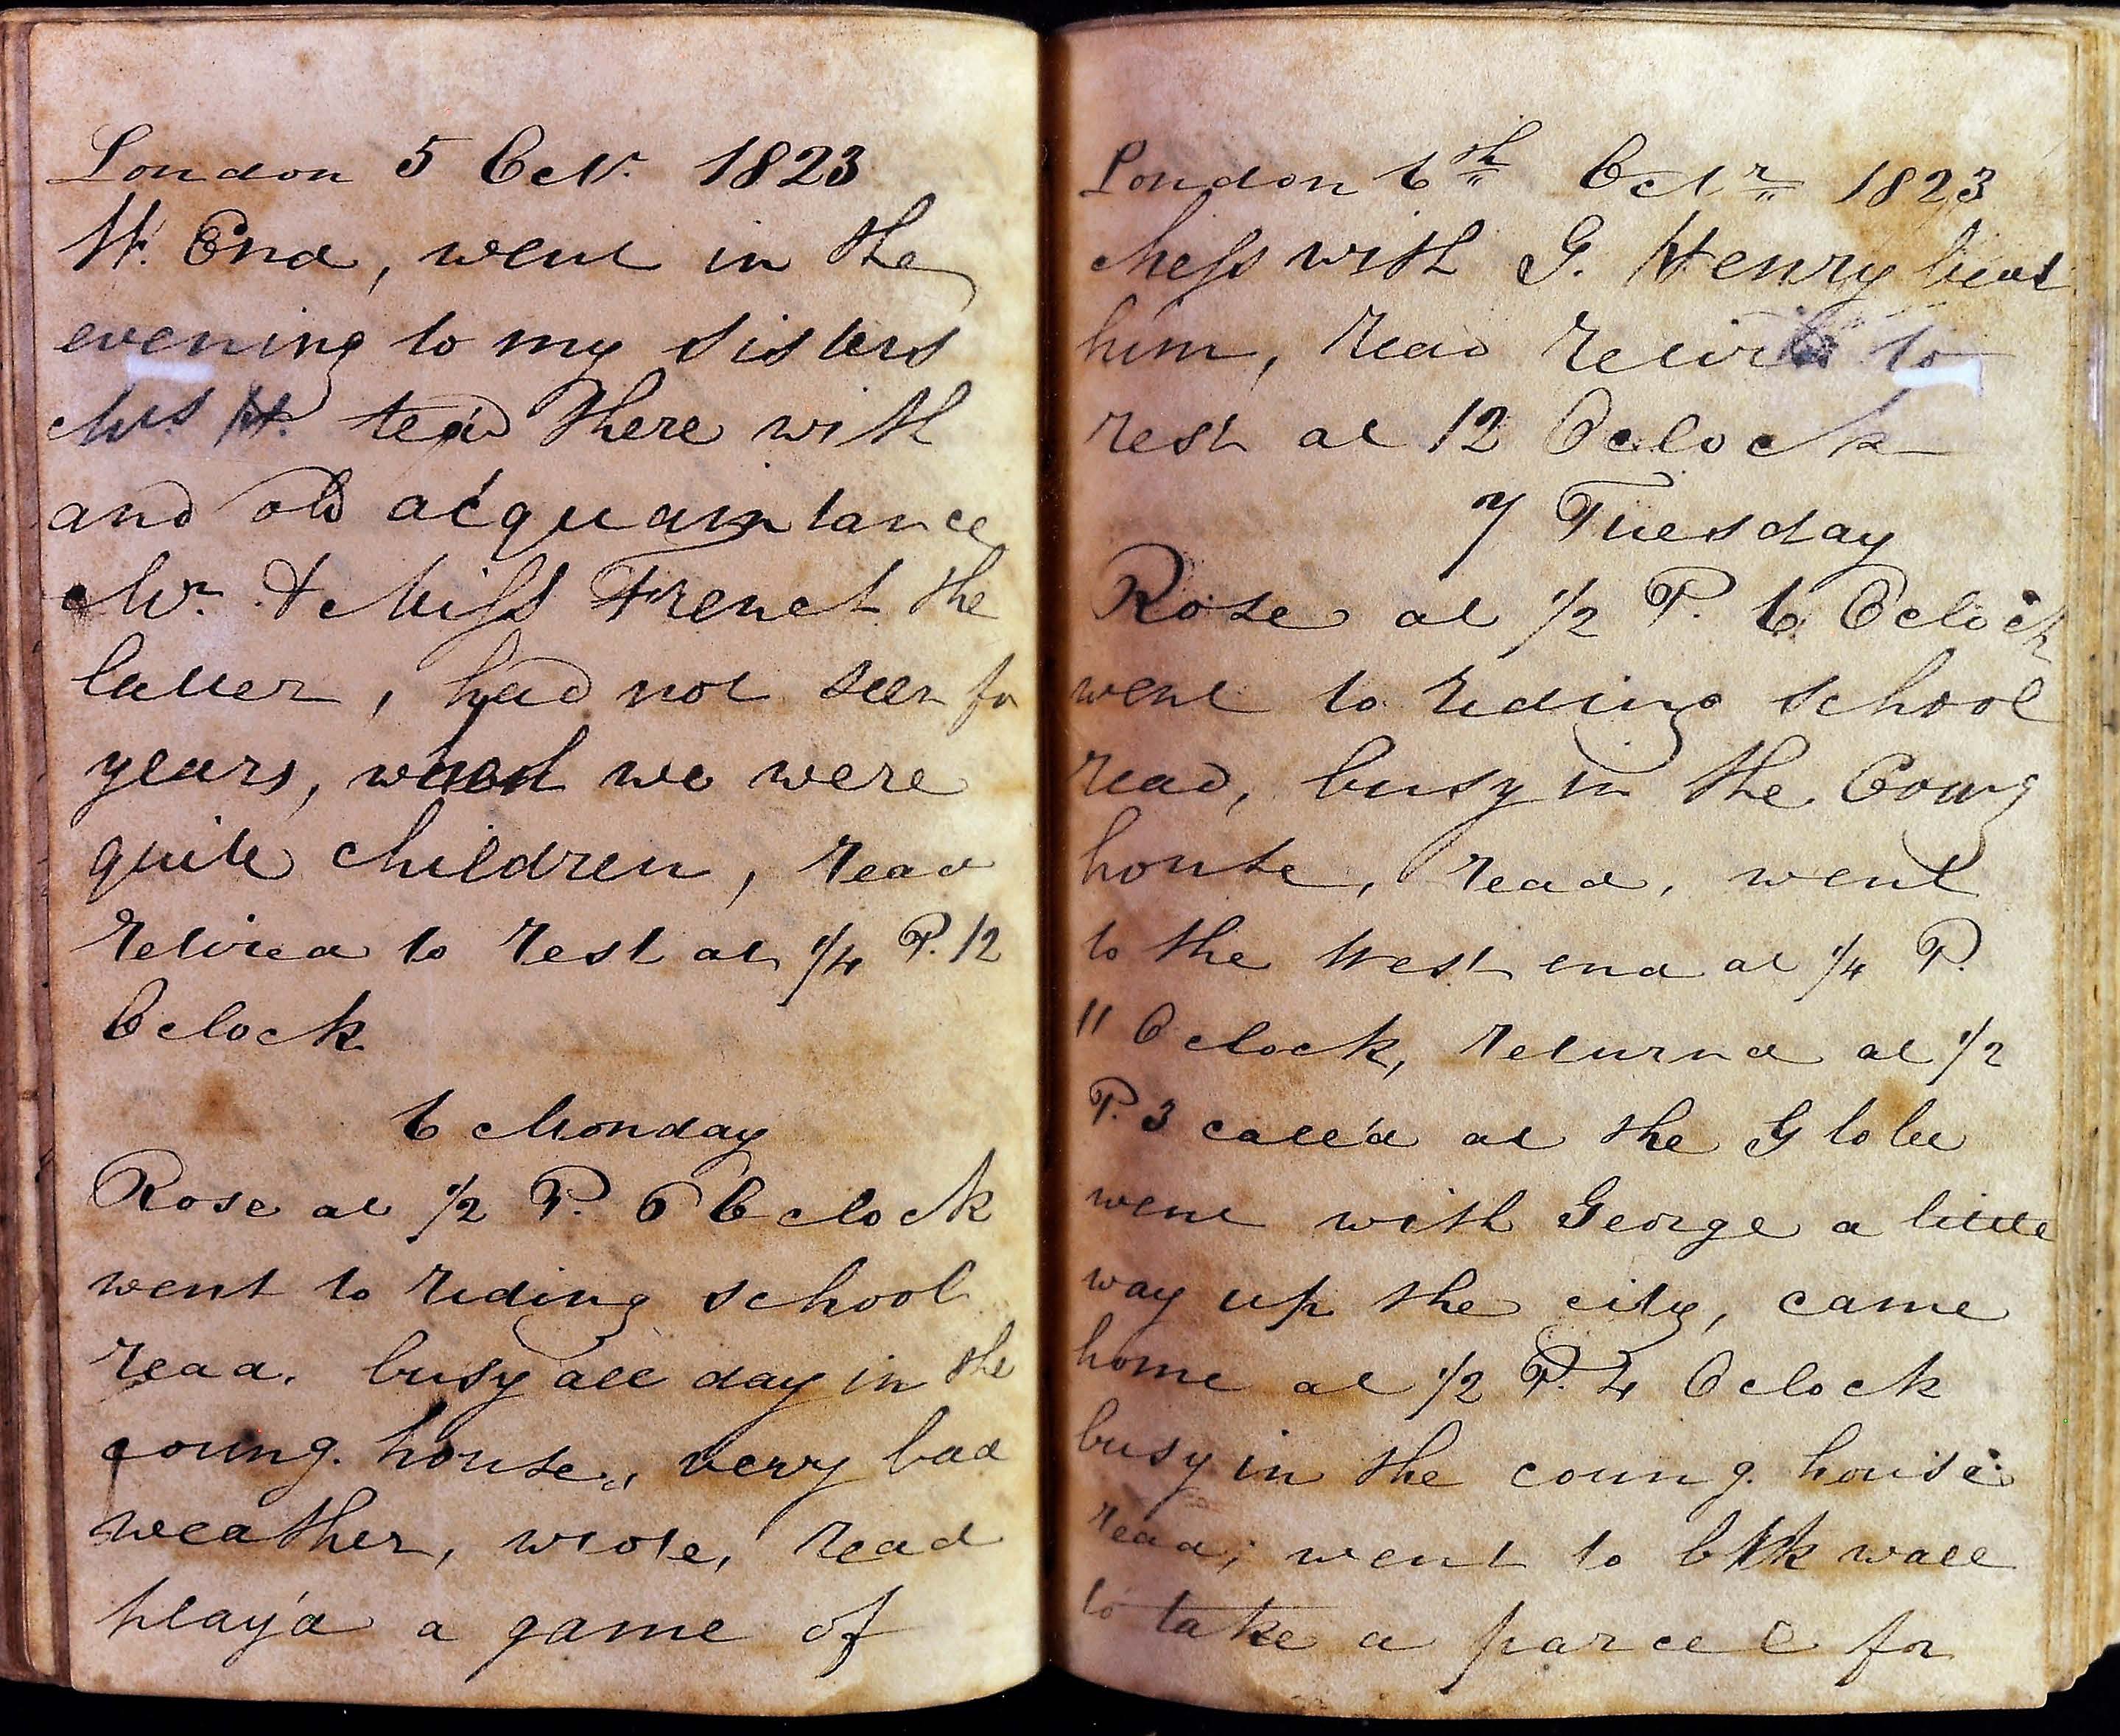 London 5 Octr. 1823
W. End, went in the
evening to my sisters
Mrs. H. tea'd there with
and old acquaintance
Mr. & Miss French the
latter, had not seen for
years, when we were
quite children, read
retired to rest at 1/4 P. 12
Oclock
6 Monday
Rose at 1/2 P. 6 Oclock
went to riding school
read. busy all day in the
coung. house, very bad
weather, wrote, read
play'd a game of
London 6th Octr 1823
chess with G. Henry beat
him, read retired to
rest at 12 Oclock
7 Tuesday
Rose at 1/2 P. 6 Oclock
went to riding school
read, busy in the Coung
house, read, went
to the West end at 1/4 P.
11 Oclock, returnd at 1/2
P. 3 call'd at the Globe
went with George a little
way up the city, came
home at 1/2 P. 4 Oclock
busy in the coung. house
read; went to blk wall
to take a parcel for